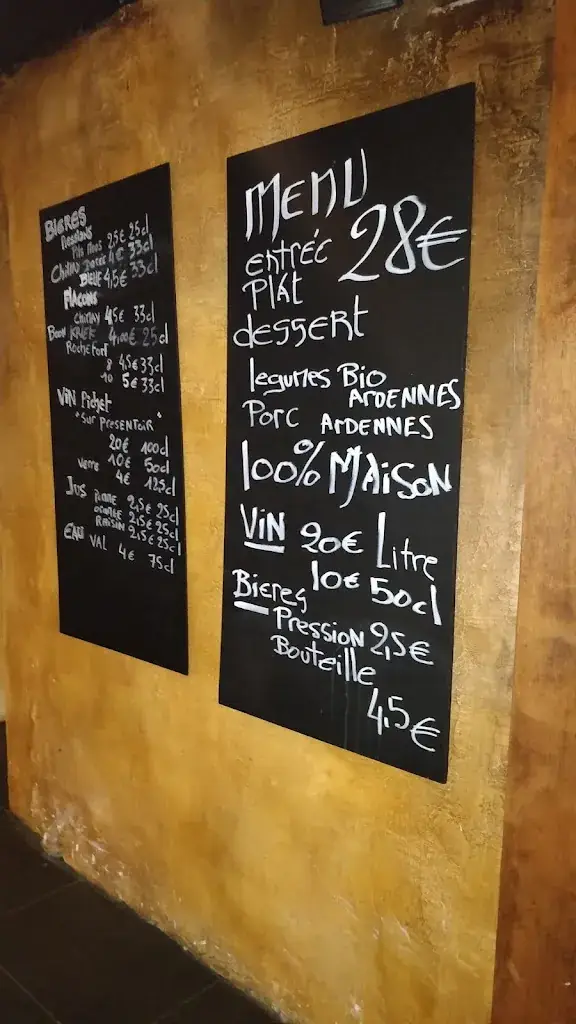 BIERES
PRESSIONS
Pils Mous 2,5€ 25cl
CHIMAY Dorée 4€ 33cl
BIEUE 4,5€ 33cl
FLACONS
CHIMAY 4,5€ 33cl
BOON KRIEK 4,00€ 25cl
ROCHEFORT
8 4,5€ 33cl
10 5€ 33cl
VIN Pichet
"SUR PRESENTOIR"
20€ 100cl
10€ 50cl
VERRE 4€ 12,5cl
JUS POMME 2,5€ 25cl
ORANGE 2,5€ 25cl
RAISIN 2,5€ 25cl
EAU VAL 4€ 75cl
MENU
28€
entrée
PLAt
dessert
legumes Bio
ARDENNES
Porc ARDENNES
100% MAISON
VIN 20€ Litre
10€ 50cl
Bieres
Pression 2,5€
Bouteille
4,5€